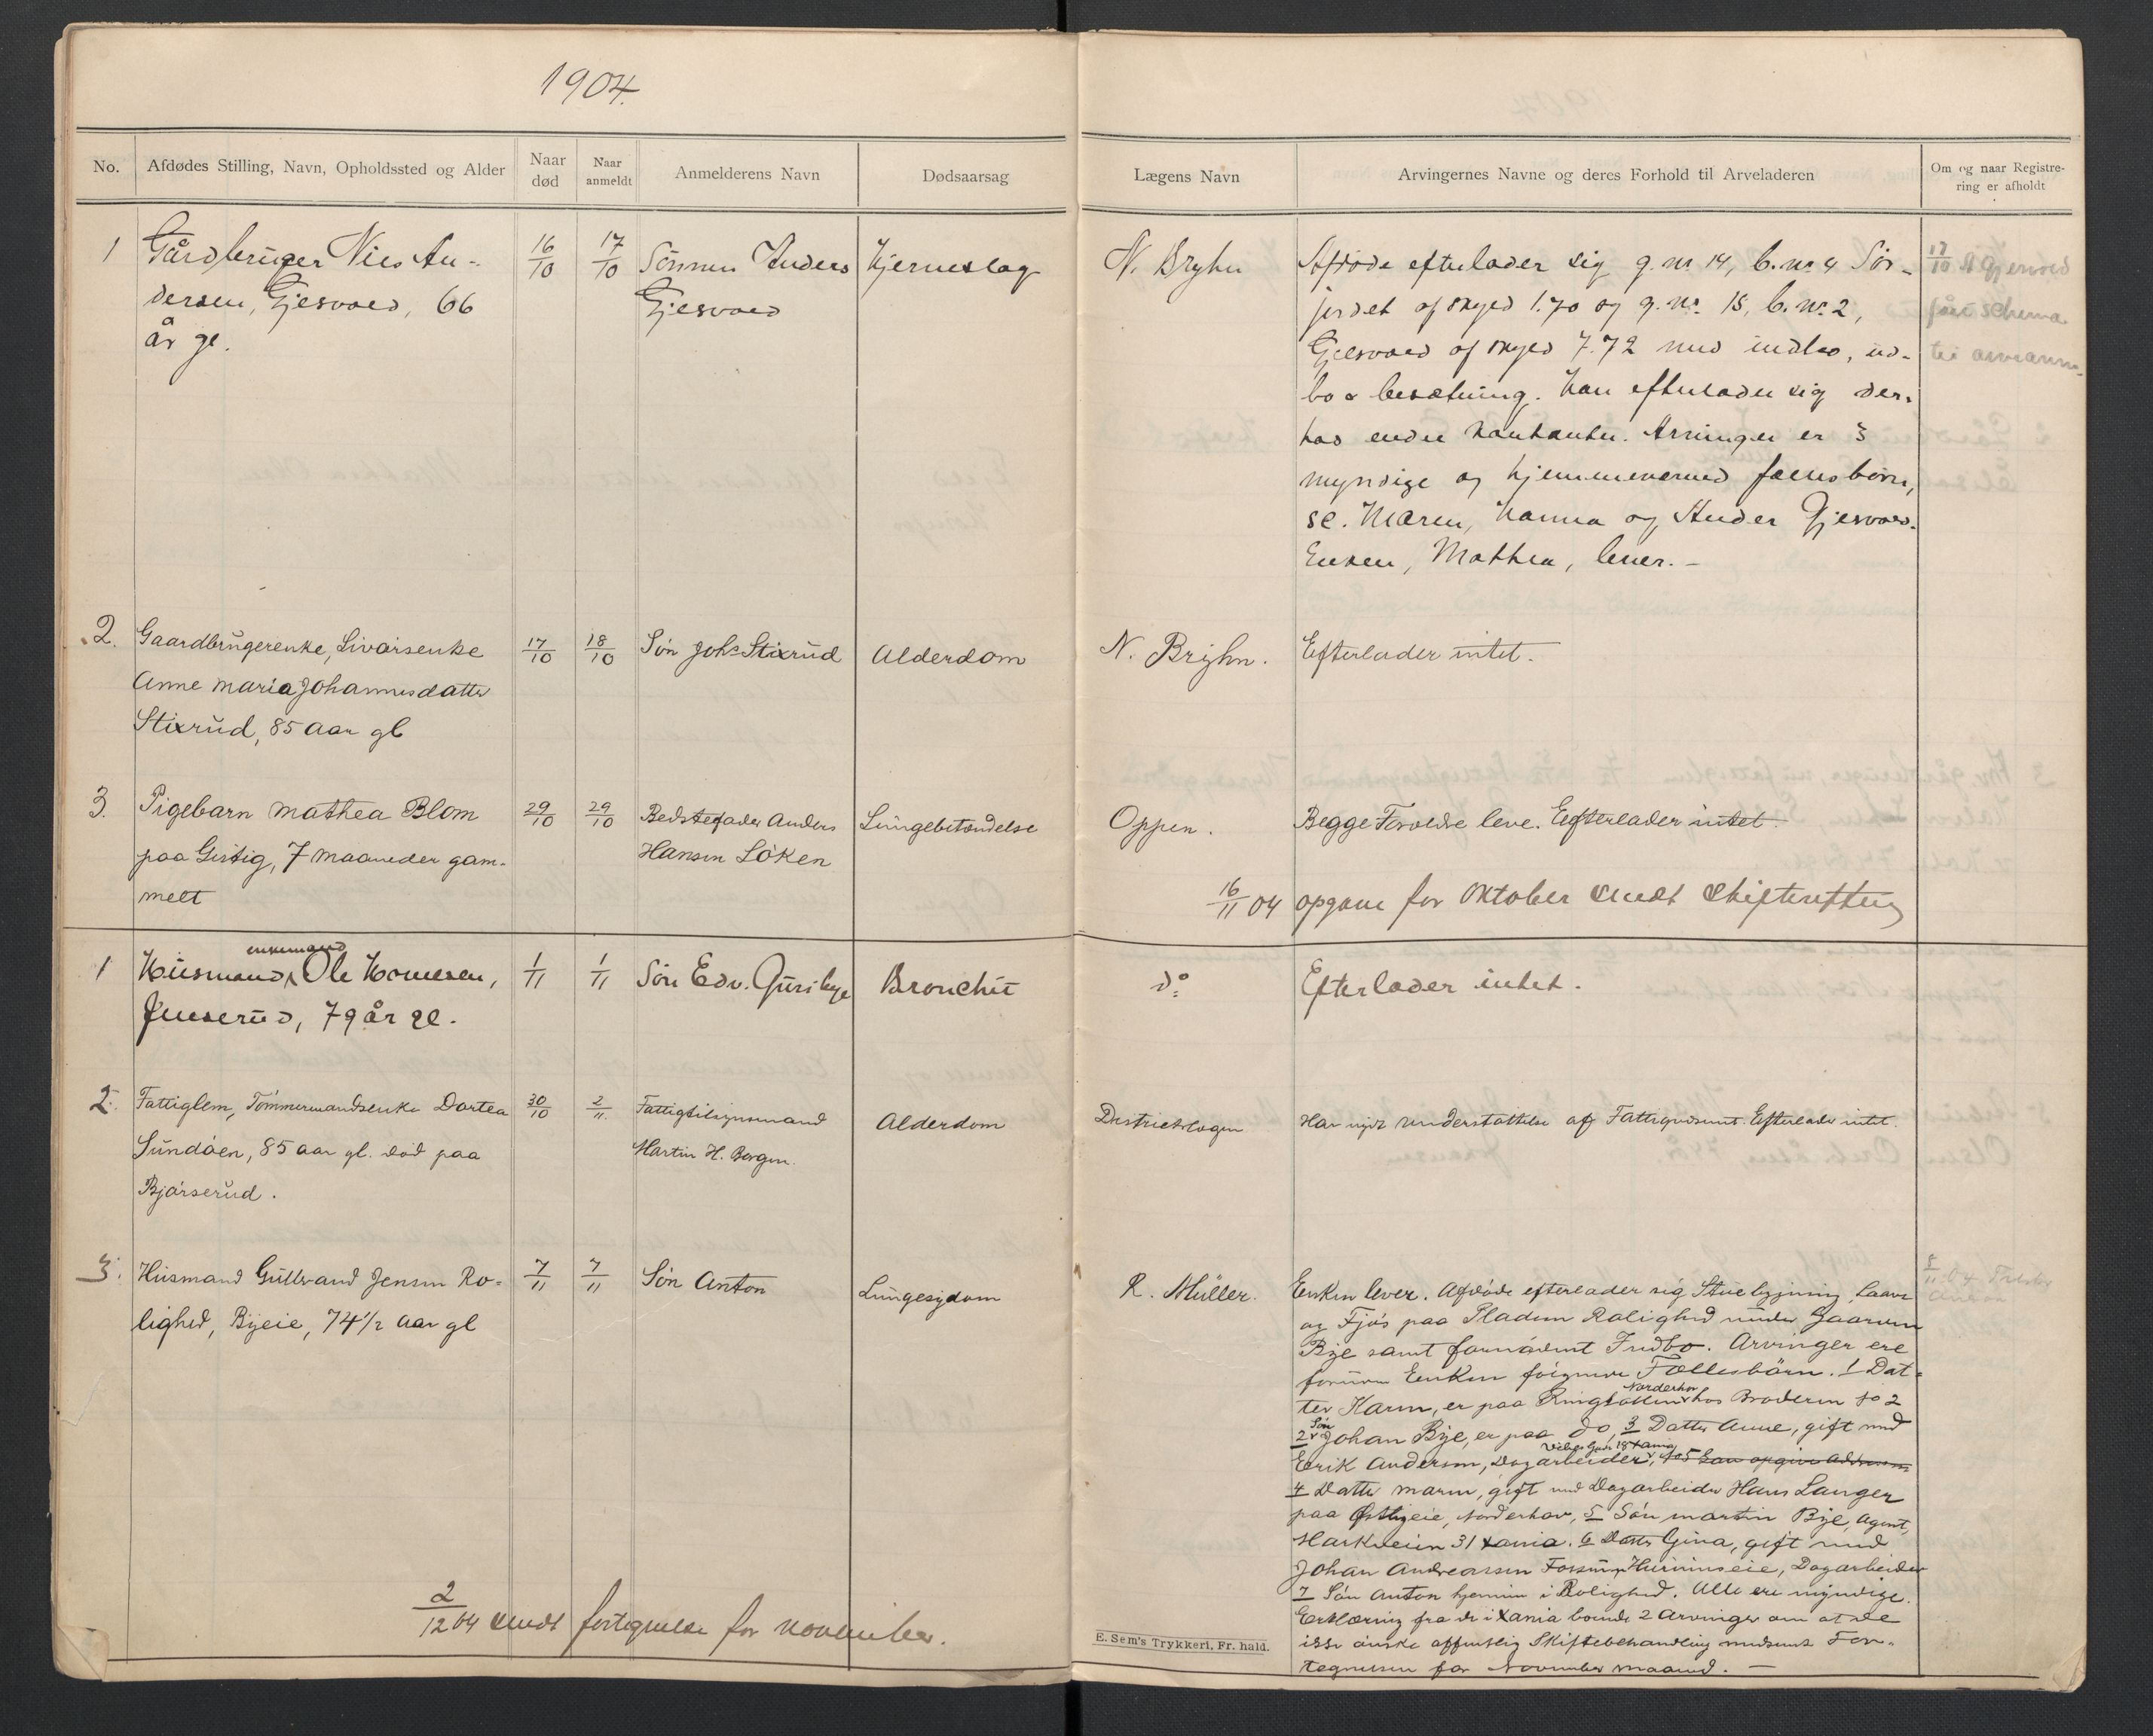 1904.
No.
Afdødes Stilling, Navn, Opholdssted og Alder
Naar død
Naar anmeldt
Anmelderens Navn
Dødsaarsag
Lægens Navn
Arvingernes Navne og deres Forhold til Arveladeren
Om og naar Registre-
ring er afholdt
1
Gårdbruger Nils An-
dersen, Gjesvold, 66
år gl.
16/10
17/10
Sønnen Anders
Gjesvold
Hjerneslag
N. Bryhn
Afdøde efterlader sig g. nr. 14, b. nr. 4 Sør-
jordet af skyld 1.70 og g. nr. 15, b. nr. 2,
Gjesvold af skyld 7.72 med indbo, ud-
bo & besætning. Han efterlader sig der-
hos endel kontanter. Arvinger er 3
myndige og hjemmeværende fællesbørn,
se. Maren, Hanna og Anders Gjesvold.
Enken, Mathea, lever. -
17/10 A Gjesvold
fåt schema
til arveanm.
2.
Gaardbrugerenke, Livørsenke
Anne Maria Johannesdatter
Stixrud, 85 Aar gl
17/10
18/10
Søn Johs Stixrud
Alderdom
N. Bryhn.
Efterlader intet.
3.
Pigebarn Mathea Blom
paa Gistig, 7 Maaneder gam-
melt
29/10
29/10
Bedstefader Anders
Hansen Löken
Lungebetændelse
Oppen.
Begge Forældre leve. Eefterlader intet.
16/11 04 opgave for Oktober sendt Skifteretten
1
enkemand
Husmand Ole Hansen,
Juuserud, 79 år gl.
1/11
1/11
Søn Edv. Gursbye
Bronchit
do
Efterlader intet.
2.
Fattiglem, Tømmermandsenke Dortea
Sundöen, 85 aar gl. død paa
Bjørserud.
30/10
2/11
Fattigtilsynsmand
Martin H. Borgen.
Alderdom
Distriktslægen
Har nydt Understøttelse af Fattigvæsenet. Efterlader intet.
3.
Husmand Gullvand Jensen Ro-
lighed, Byeie, 74 1/2 Aar gl
7/11
7/11
Søn Anton
Lungesygdom
R. Müller.
Enken lever. Afdøde efterlader sig Stuebygning, Laave
og Fjøs paa Pladsen Rolighed under Gaarden
Bye samt fornødent Indbo. Arvinger ere
foruden Enken følgende Fællesbørn. 1 Dat-
Norderhov
ter Karen, er paa hos Broderen No 2
Søn
2 Johan Bye, er paa do, 3 Datter Anne, gift med
18 Xania
Eerik Andersen, Dagarbeider,
4 Datter Maren, gift med Dagarbeider Hans Langer
paa Østbyeie, Norderhov, 5 Søn Martin Bye, Agent,
Markveien 31 Xania. 6 Datter Gina, gift med
Johan Andreassen Fossum Hurumseie, Dagarbeider
7 Søn Anton hjemme i Rolighed. Alle ere myndige.
Eerklæring fra de i Xania boende 2 Arvinger om at de
ikke ønske offentlig Skiftebehandling medsendt For-
tegnelsen for November Maaned. -
2/12 04 sendt fortegnelse for november.
E. Sem's Trykkeri, Fr. hald.